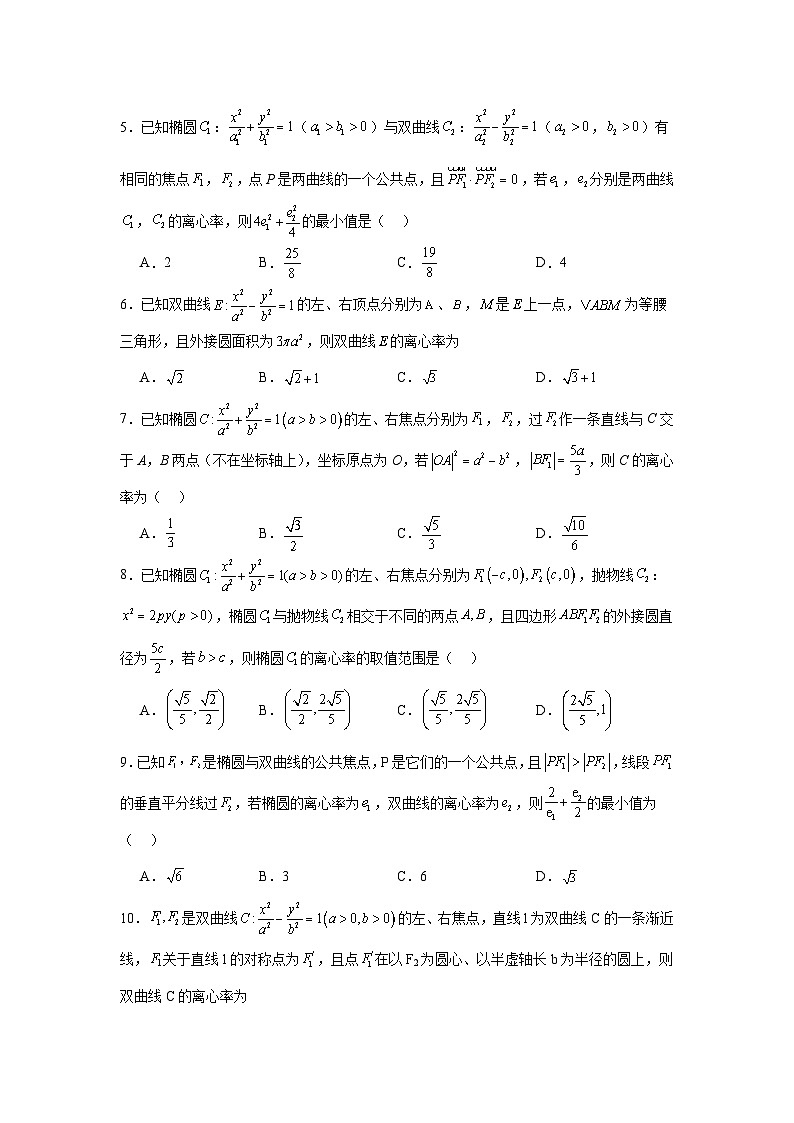 5．已知椭圆 C₁：x²/a₁² + y²/b₁² = 1（a₁ > b₁ > 0）与双曲线 C₂：x²/a₂² − y²/b₂² = 1（a₂ > 0，b₂ > 0）有
相同的焦点 F₁，F₂，点 P 是两曲线的一个公共点，且 PF₁ · PF₂ = 0，若 e₁，e₂ 分别是两曲线
C₁，C₂ 的离心率，则 4e₁² + e₂²/4 的最小值是（ ）
A．2 B．25/8 C．19/8 D．4
6．已知双曲线 E : x²/a² − y²/b² = 1 的左、右顶点分别为 A 、B，M 是 E 上一点，∨ABM 为等腰
三角形，且外接圆面积为 3πa²，则双曲线 E 的离心率为
A．√2 B．√2 + 1 C．√3 D．√3 + 1
7．已知椭圆 C : x²/a² + y²/b² = 1 (a > b > 0) 的左、右焦点分别为 F₁，F₂，过 F₂ 作一条直线与 C 交
于 A，B 两点（不在坐标轴上），坐标原点为 O，若 |OA|² = a² − b²，|BF₁| = 5a/3，则 C 的离心
率为（ ）
A．1/3 B．√3/2 C．√5/3 D．√10/6
8．已知椭圆 C₁ : x²/a² + y²/b² = 1(a > b > 0) 的左、右焦点分别为 F₁(−c,0), F₂(c,0)，抛物线 C₂：
x² = 2py(p > 0)，椭圆 C₁ 与抛物线 C₂ 相交于不同的两点 A, B，且四边形 ABF₁F₂ 的外接圆直
径为 5c/2，若 b > c，则椭圆 C₁ 的离心率的取值范围是（ ）
A．(√5/5, √2/2) B．(√2/2, 2√5/5) C．(√5/5, 2√5/5) D．(2√5/5, 1)
9．已知 F₁，F₂ 是椭圆与双曲线的公共焦点，P 是它们的一个公共点，且 |PF₁| > |PF₂|，线段 PF₁
的垂直平分线过 F₂，若椭圆的离心率为 e₁，双曲线的离心率为 e₂，则 2/e₁ + e₂/2 的最小值为
（ ）
A．√6 B．3 C．6 D．√3
10．F₁, F₂ 是双曲线 C : x²/a² − y²/b² = 1 (a > 0, b > 0) 的左、右焦点，直线 l 为双曲线 C 的一条渐近
线，F₁ 关于直线 l 的对称点为 F₁′，且点 F₁′ 在以 F₂ 为圆心、以半虚轴长 b 为半径的圆上，则
双曲线 C 的离心率为